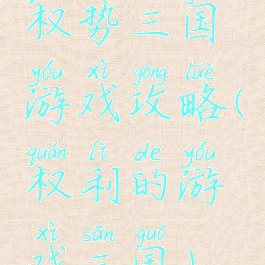 权势三国
yóu xì gōng lüè
游戏攻略(
quán lì de yóu
权利的游
xì sān guó
戏三国)